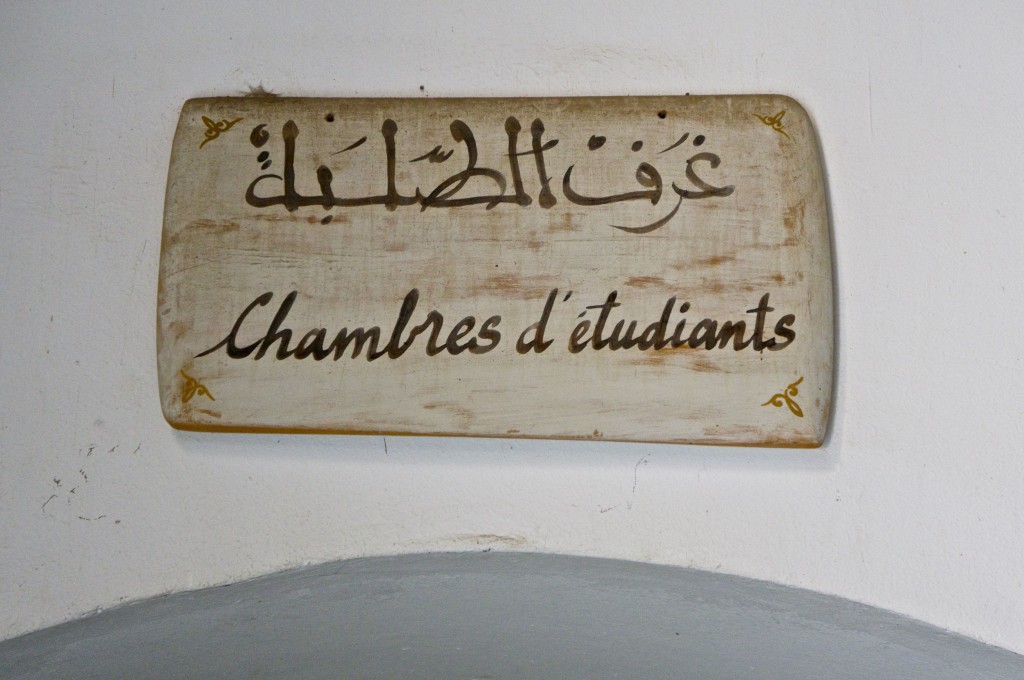 غرَف الطّلَبة
Chambres d'étudiants